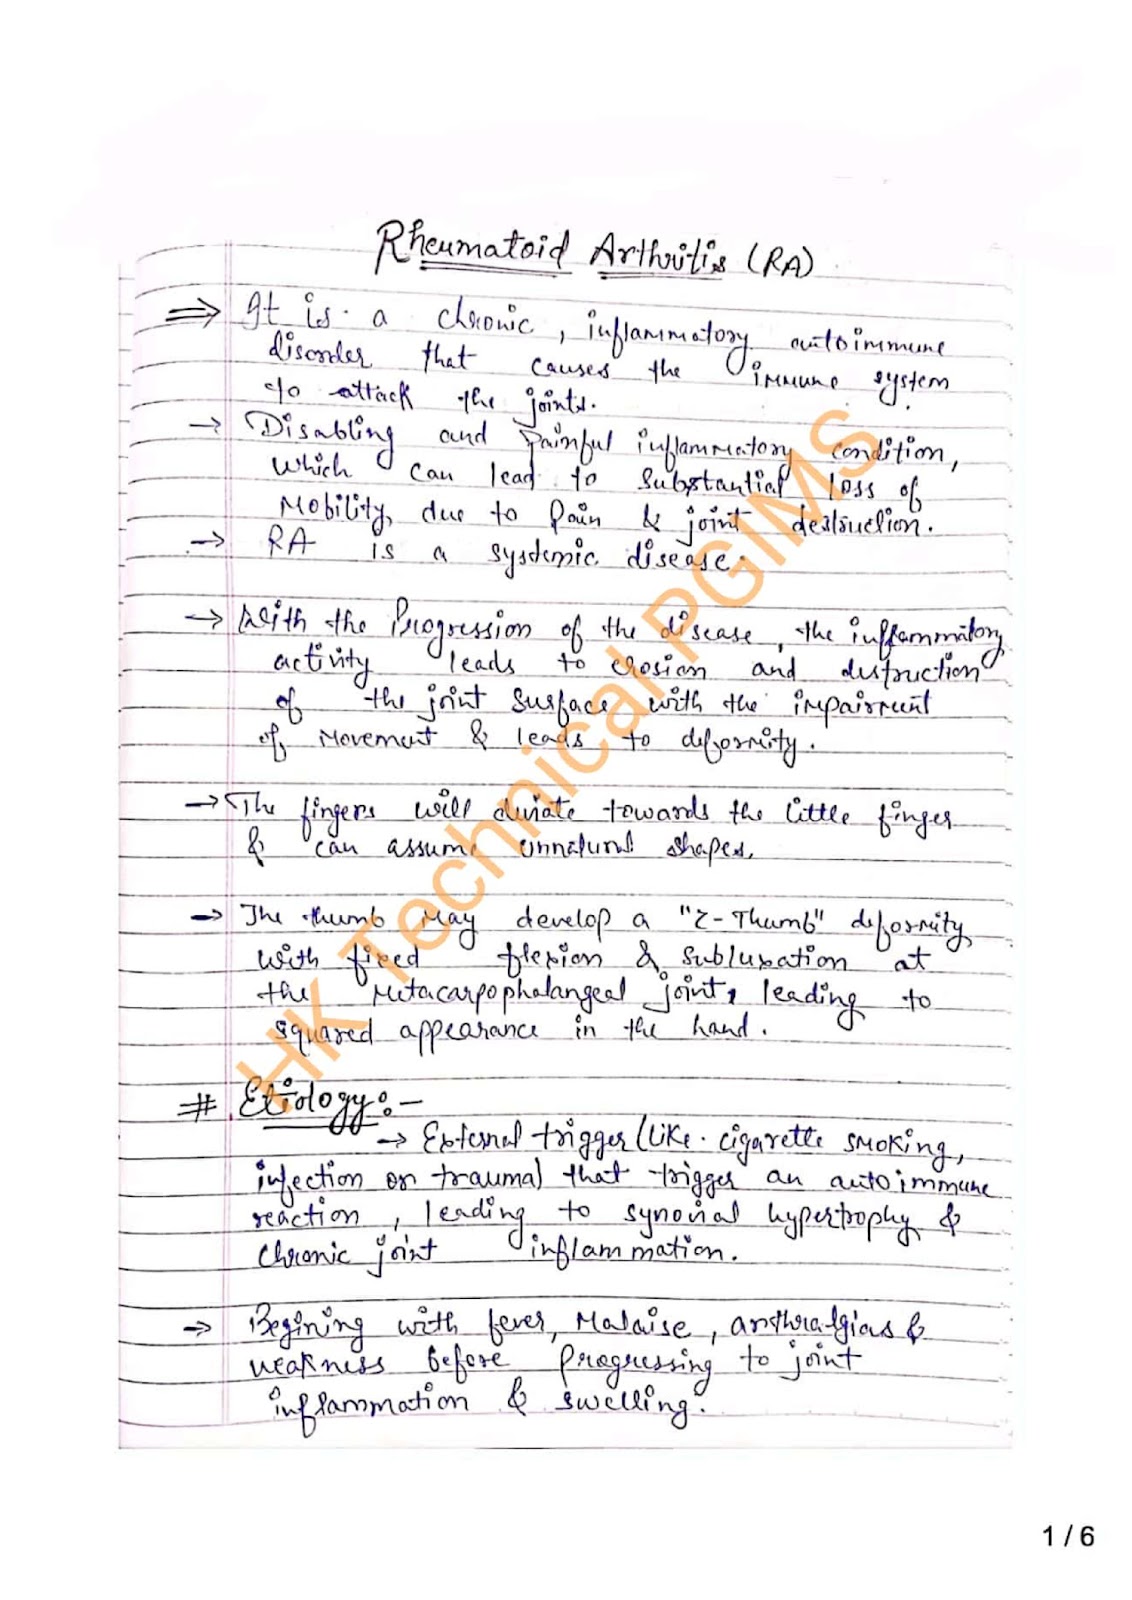 Rheumatoid Arthritis (RA)
⇒ It is a chronic, inflammatory autoimmune
disorder that causes the immune system
to attack the joints.
→ Disabling and painful inflammatory condition,
which can lead to substantial loss of
Mobility, due to Pain & joint destruction.
→ RA is a systemic disease.
→ With the Progression of the disease, the inflammatory
activity leads to erosion and distruction
of the joint surface with the impairment
of movement & leads to deformity.
→ The fingers will diviate towards the little finger
& can assume unnatural shapes.
→ The thumb may develop a "Z-Thumb" deformity
with fixed flexion & subluxation at
the Metacarpophalangeal joint, leading to
squared appearance in the hand.
# Etiology:-
→ External trigger (Like. cigarette smoking,
infection or trauma) that trigger an autoimmune
reaction, leading to synovial hypertrophy &
Chronic joint inflammation.
→ Begining with fever, Malaise, arthralgias &
weakness before progressing to joint
inflammation & swelling.
HK Technical PGIMS
1 / 6